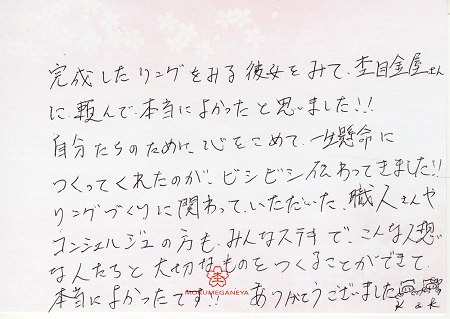 完成したリングをみる彼女をみて、杢目金屋さん
に頼んで、本当によかったと思いました!!
自分たちのために、心をこめて、一生懸命に
つくってくれたのが、ビシビシ伝わってきました!!
リングづくりに関わって、いただいた、職人さんや
コンシェルジュの方も、みんなステキで、こんな
な人たちと大切なものをつくることができて、
本当によかったです!! ありがとうございました
MOKUMEGANEYA